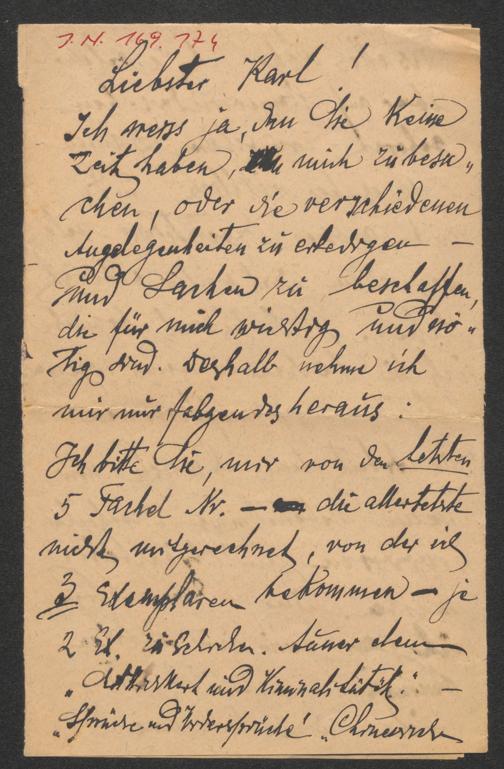 J.N. 169.174
Liebster Karl!
Ich weiss ja, dass Sie keine
Zeit haben, mich zu besu-
chen, oder die verschiedenen
Angelegenheiten zu erledigen –
und Sachen zu beschaffen,
die für mich wichtig und nö-
tig sind. Deshalb nehme ich
mir nur folgendes heraus:
Ich bitte Sie, mir von den letzten
5 Fackel Nr. – die allerletzte
nicht mitgerechnet, von der ich
3 Exemplaren bekommen – je
2 Ex. zu schicken. Ausser dem
"Sittlichkeit und Kriminalität." –
"Sprüche und Widersprüche" "Chinesische